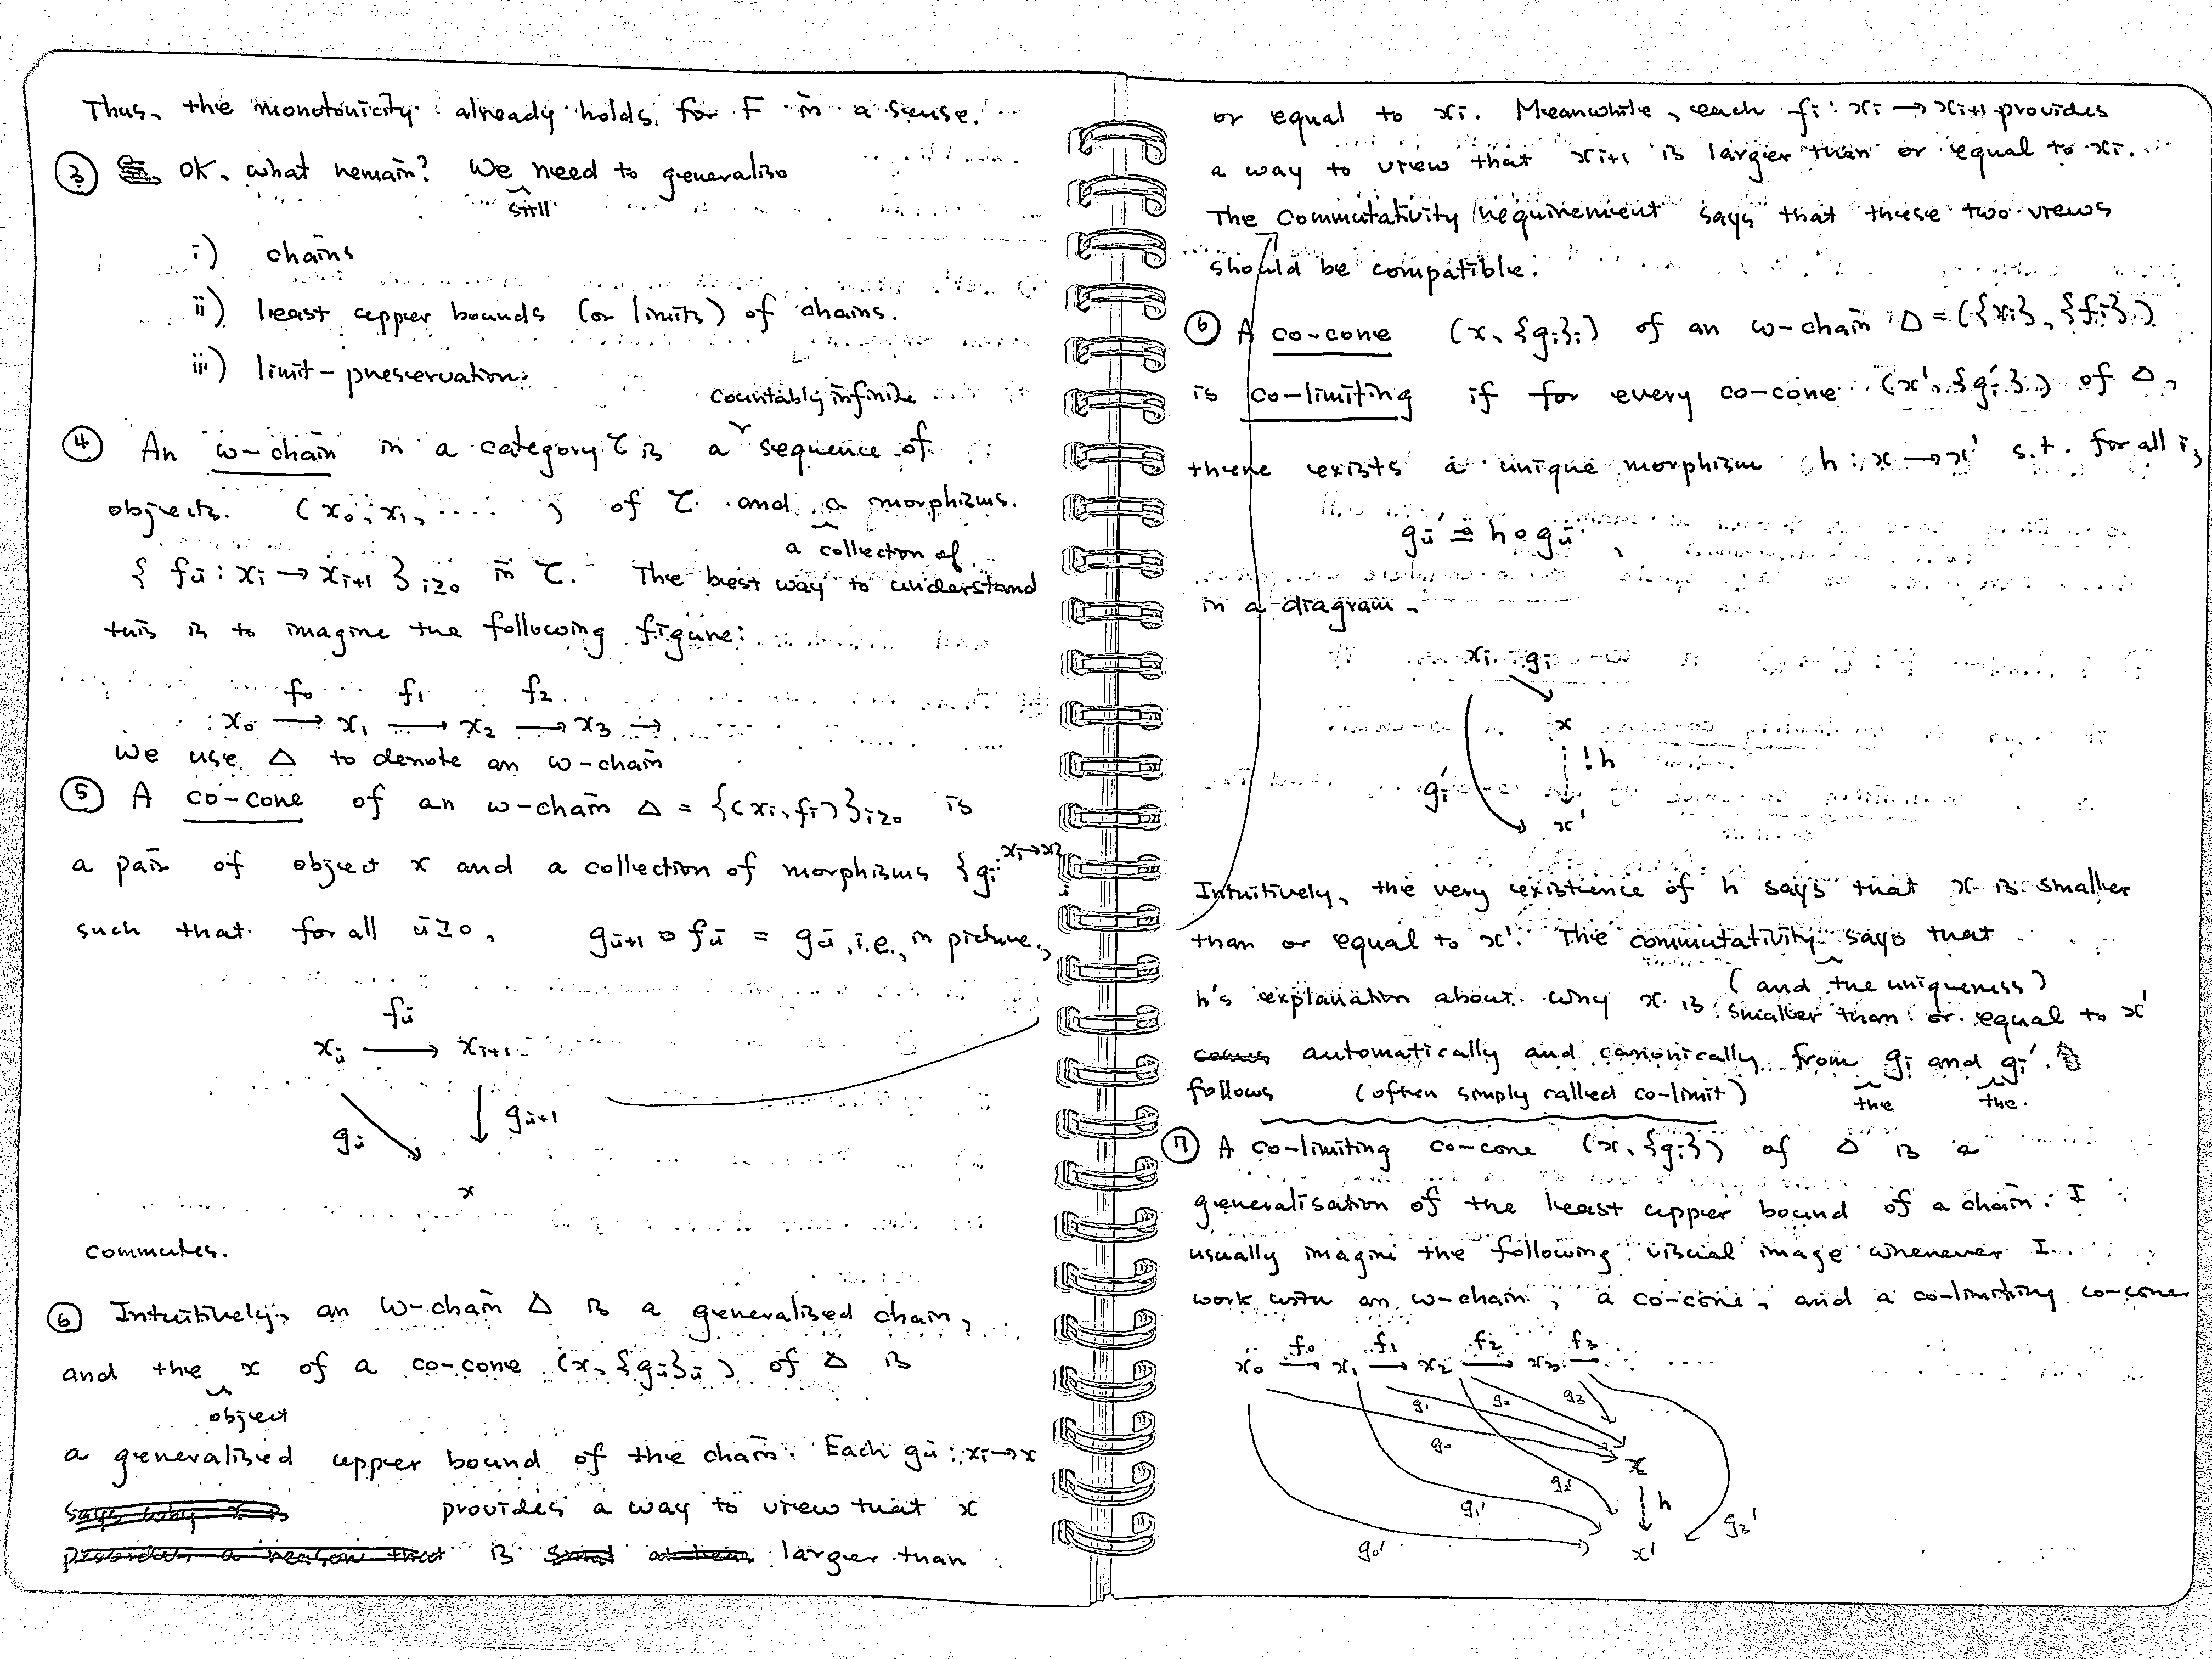 Thus, the monotonicity already holds for F in a sense.
③ OK, what remain? We still need to generalise
i) chains
ii) least upper bounds (or limits) of chains.
iii) limit-preservation.
④ An ω-chain in a category τ is a countably infinite sequence of
objects (x₀, x₁, ..... ) of τ and a a collection of morphisms
{ fᵢ : xᵢ → xᵢ₊₁ }ᵢ≥₀ in τ. The best way to understand
this is to imagine the following figure:
f₀ f₁ f₂
x₀ → x₁ → x₂ → x₃ →
We use Δ to denote an ω-chain
⑤ A co-cone of an ω-chain Δ = {(xᵢ, fᵢ)}ᵢ≥₀ is
a pair of object x and a collection of morphisms {gᵢ : xᵢ → x}ᵢ
such that for all i≥0, gᵢ₊₁ ∘ fᵢ = gᵢ, i.e., in picture,
fᵢ
xᵢ → xᵢ₊₁
gᵢ gᵢ₊₁
x
commutes.
⑥ Intuitively, an ω-chain Δ is a generalised chain,
and the object x of a co-cone (x, {gᵢ}ᵢ) of Δ is
a generalised upper bound of the chain. Each gᵢ : xᵢ → x
provides a way to view that x
is larger than
or equal to xᵢ. Meanwhile, each fᵢ : xᵢ → xᵢ₊₁ provides
a way to view that xᵢ₊₁ is larger than or equal to xᵢ.
The commutativity requirement says that these two views
should be compatible.
⑥ A co-cone (x, {gᵢ}ᵢ) of an ω-chain Δ = ({xᵢ}, {fᵢ})
is co-limiting if for every co-cone (x', {gᵢ'}ᵢ) of Δ,
there exists a unique morphism h : x → x' s.t. for all i,
gᵢ' = h ∘ gᵢ ,
in a diagram,
xᵢ gᵢ
x
!h
gᵢ'
x'
Intuitively, the very existence of h says that x is smaller
than or equal to x'. The commutativity (and the uniqueness) says that
h's explanation about why x is smaller than or equal to x'
follows automatically and canonically from the gᵢ and the gᵢ'.
(often simply called co-limit)
⑦ A co-limiting co-cone (x, {gᵢ}) of Δ is a
generalisation of the least upper bound of a chain. I
usually imagine the following visual image whenever I
work with an ω-chain, a co-cone, and a co-limiting co-cone
f₀ f₁ f₂ f₃
x₀ → x₁ → x₂ → x₃ → ....
g₁ g₂ g₃
g₀
x
g₂'
g₁' h g₃'
g₀' x'